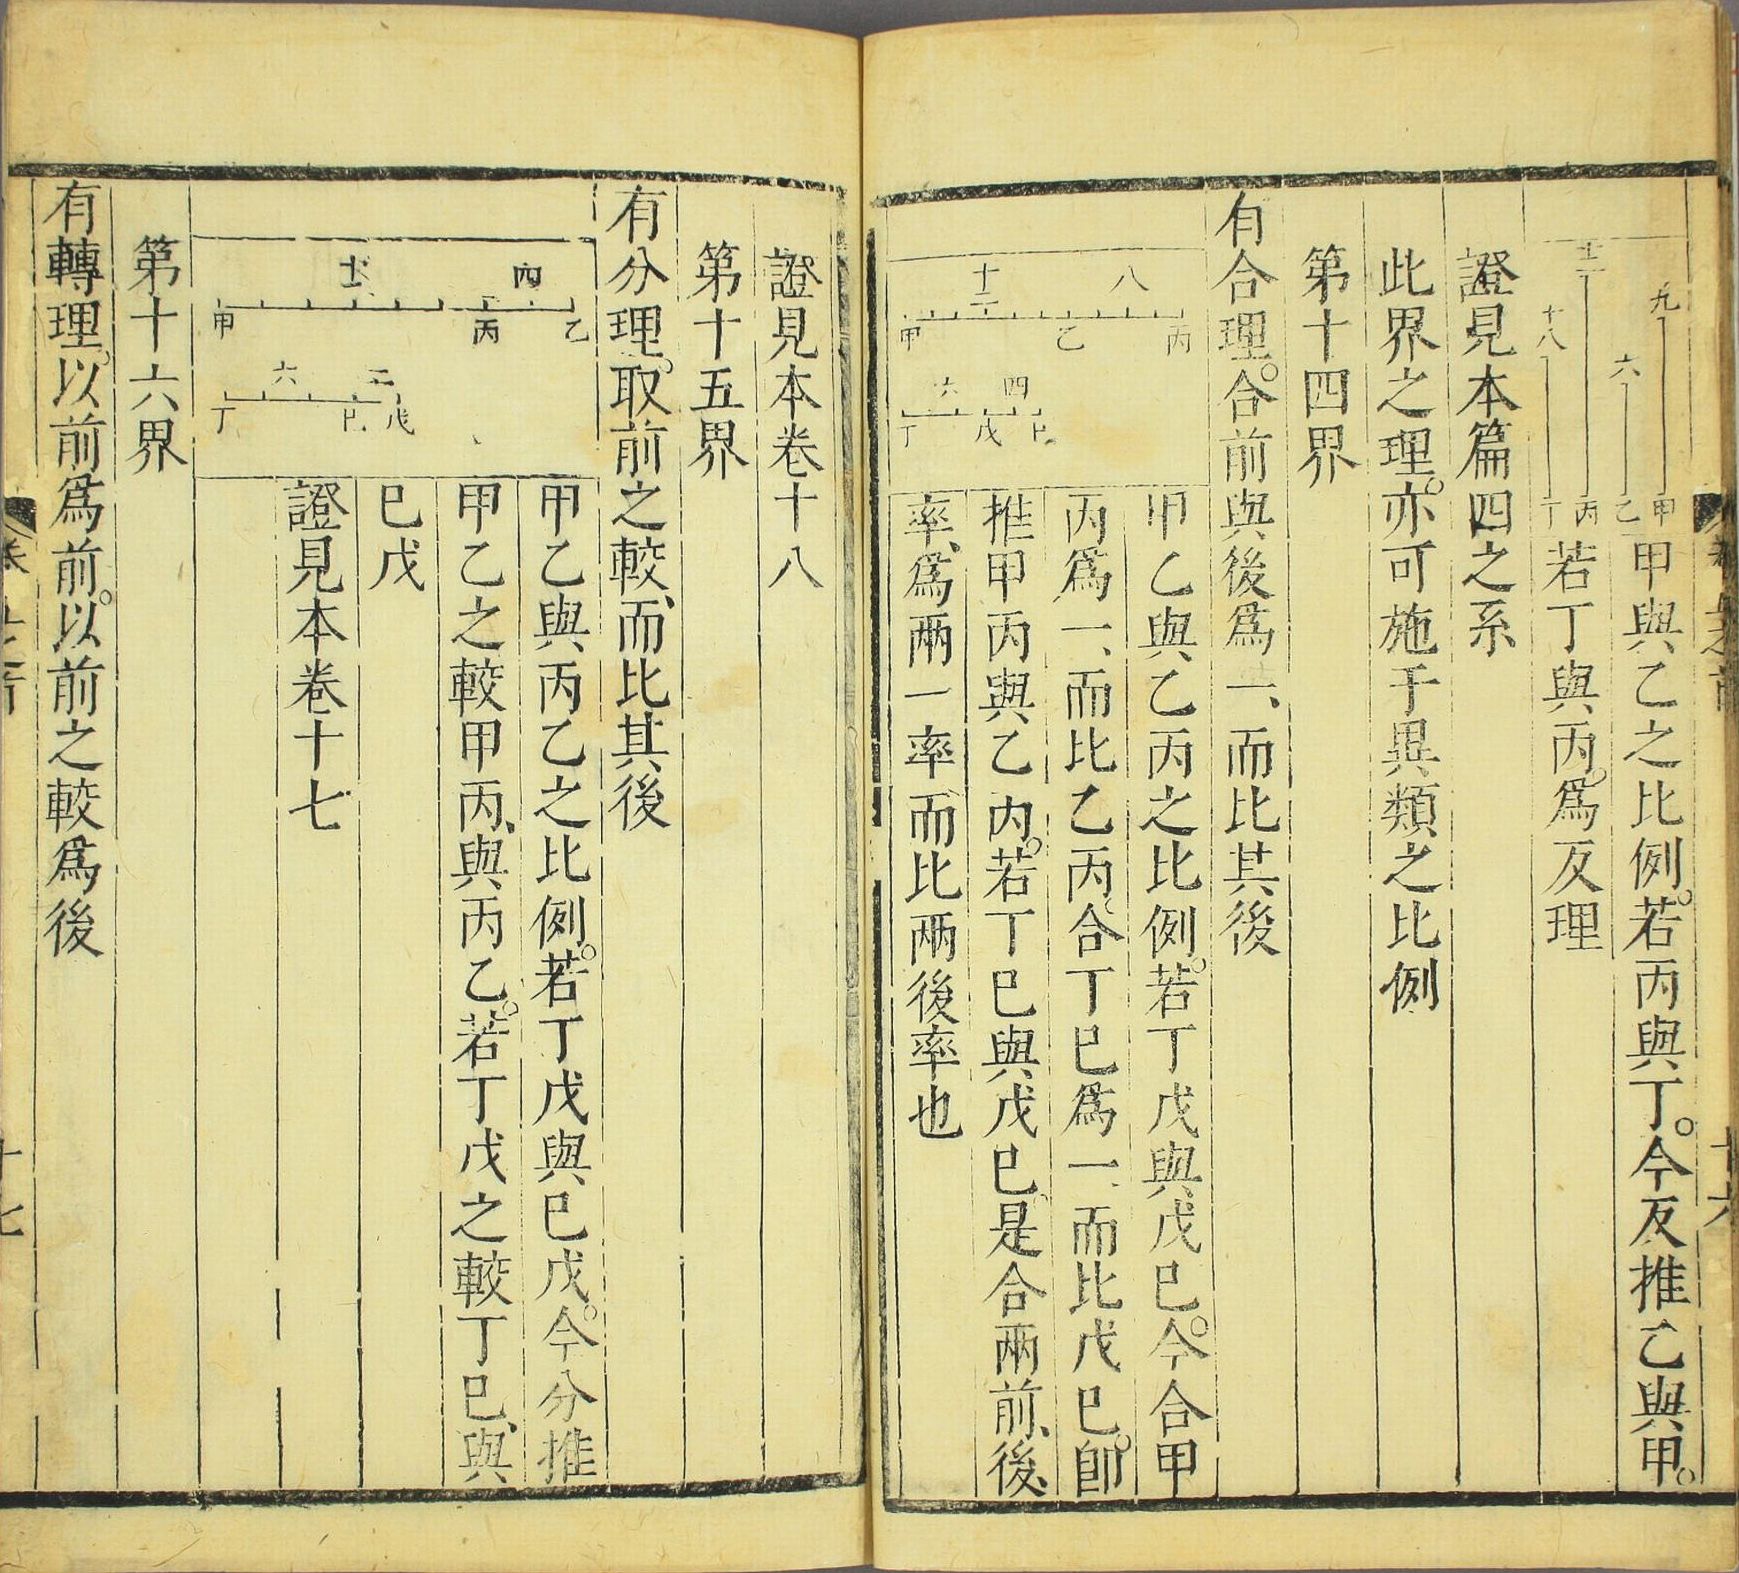 九
六
十二
十八
甲
乙
丙
丁
甲與乙之比例。若丙與丁。今反推乙與甲。
若丁與丙。爲反理
證見本篇四之系
此界之理。亦可施于異類之比例
第十四界
有合理。合前與後爲一、而比其後
八
十二
丙
乙
甲
四
六
巳
戊
丁
甲乙與乙丙之比例。若丁戊與戊巳。今合甲
丙爲一、而比乙丙。合丁巳爲一、而比戊巳。卽
推甲丙與乙丙。若丁巳與戊巳。是合兩前、後、
率、爲兩一率、而比兩後率也
證見本卷十八
第十五界
有分理。取前之較、而比其後
四
乙
丙
甲
六
戊
巳
丁
甲乙與丙乙之比例。若丁戊與巳戊。今分推
甲乙之較甲丙、與丙乙。若丁戊之較丁巳、與
巳戊
證見本卷十七
第十六界
有轉理。以前爲前。以前之較爲後